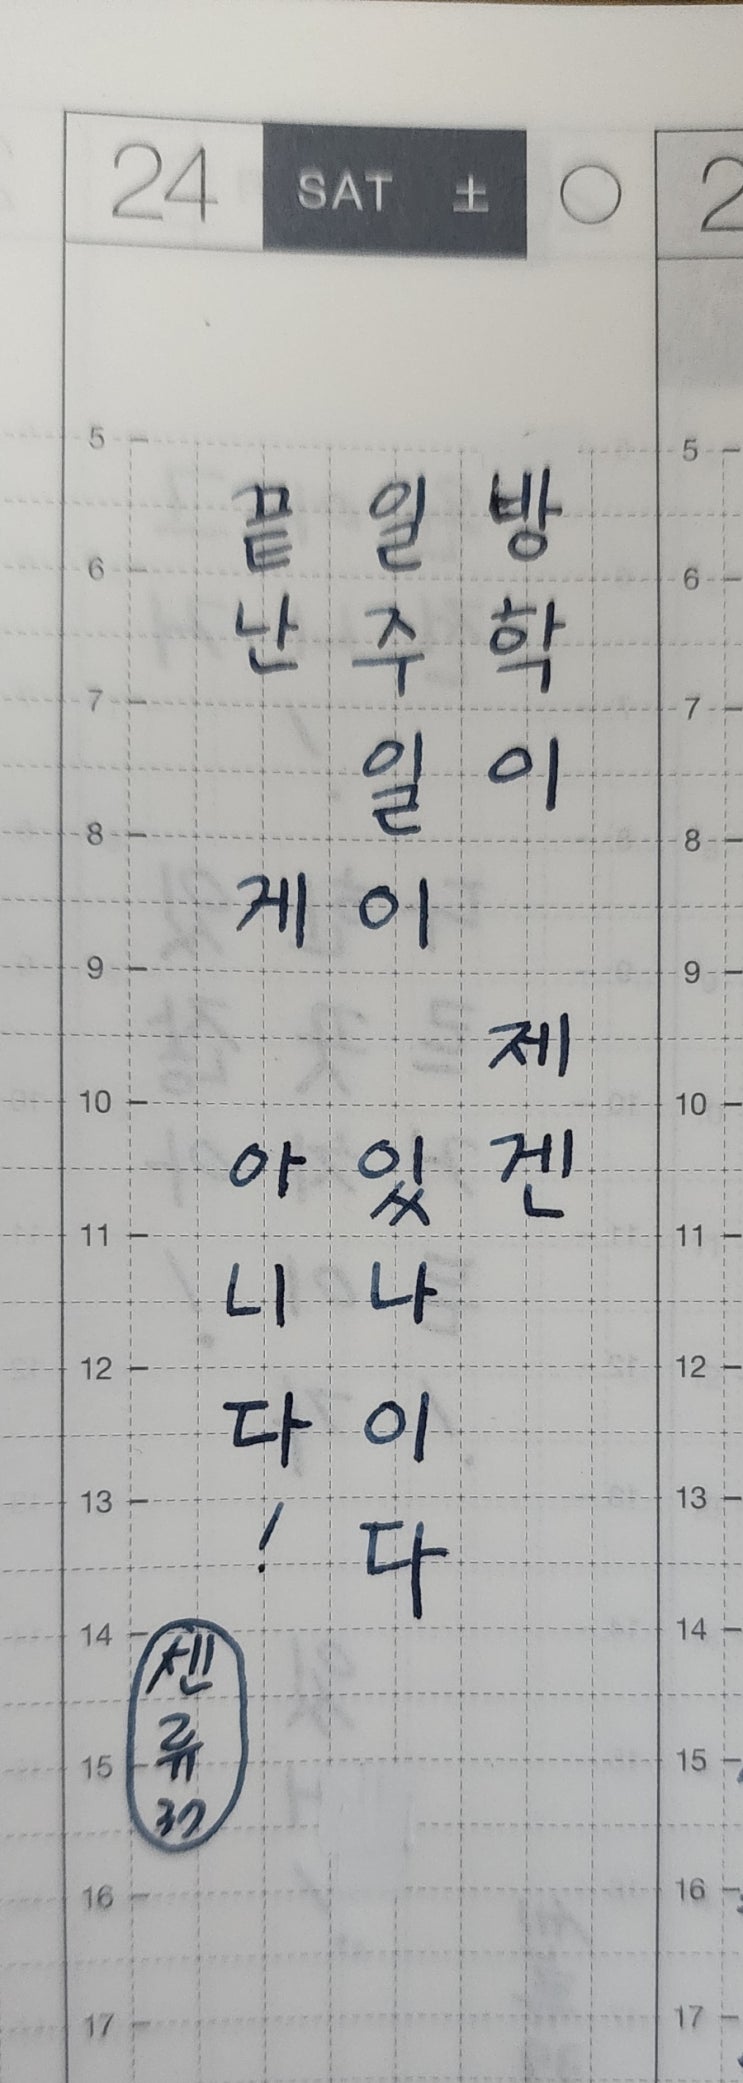 24 SAT 土
2
방학이 제겐
일주일이 있나이다
끝난 게 아니다!
센류37
5
6
7
8
9
10
11
12
13
14
15
16
17
5
6
7
8
9
10
11
12
13
14
15
16
17